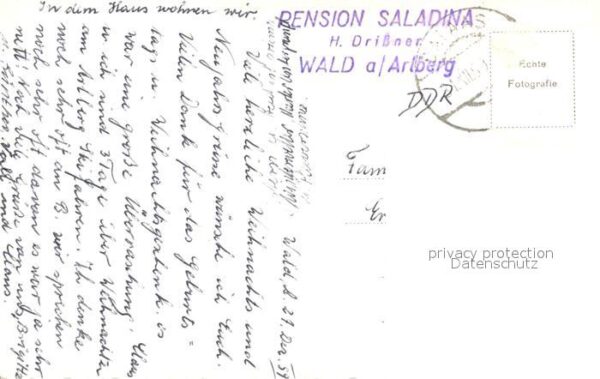 In dem Haus wohnen wir.
PENSION SALADINA
H. Drißner
WALD a/Arlberg
Echte
Fotografie
DDR
Fam
privacy protection
Datenschutz
Wald, d. 27. Dez. 59
Viel herzliche Weihnachts und
Neujahrsgrüsse wünsche ich Euch.
Vielen Dank für das Geburts=
tags u. Weihnachtsgeschenk, es
war eine große Überraschung. Klaus
u. ich sind 3 Tage über Weihnachten
am Arlberg Ski fahren. Ich denke
noch sehr oft an B. wir sprechen
noch sehr oft davon es war ja sehr
nett. Noch viele Grüße von
und Klaus.